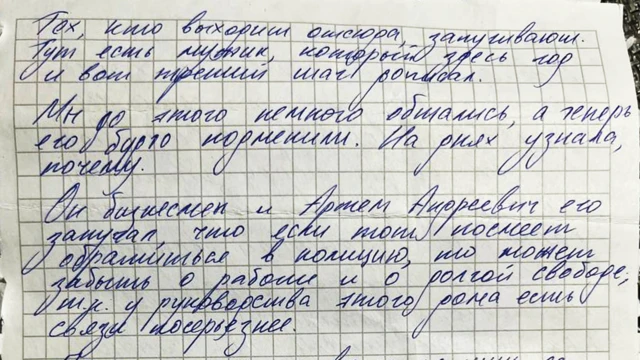 Тех, кто выходит отсюда, запугивают.
Тут есть мужик, который здесь год
и вот третий шаг дописал.
Мы до этого немного общались, а теперь
его будто подменили. На днях узнала,
почему.
Он бизнесмен и Артем Андреевич его
запугал, что если тот посмеет
обратиться в полицию, то может
забыть о работе и о долгой свободе,
т.к. у руководства этого дома есть
связи посерьезнее.